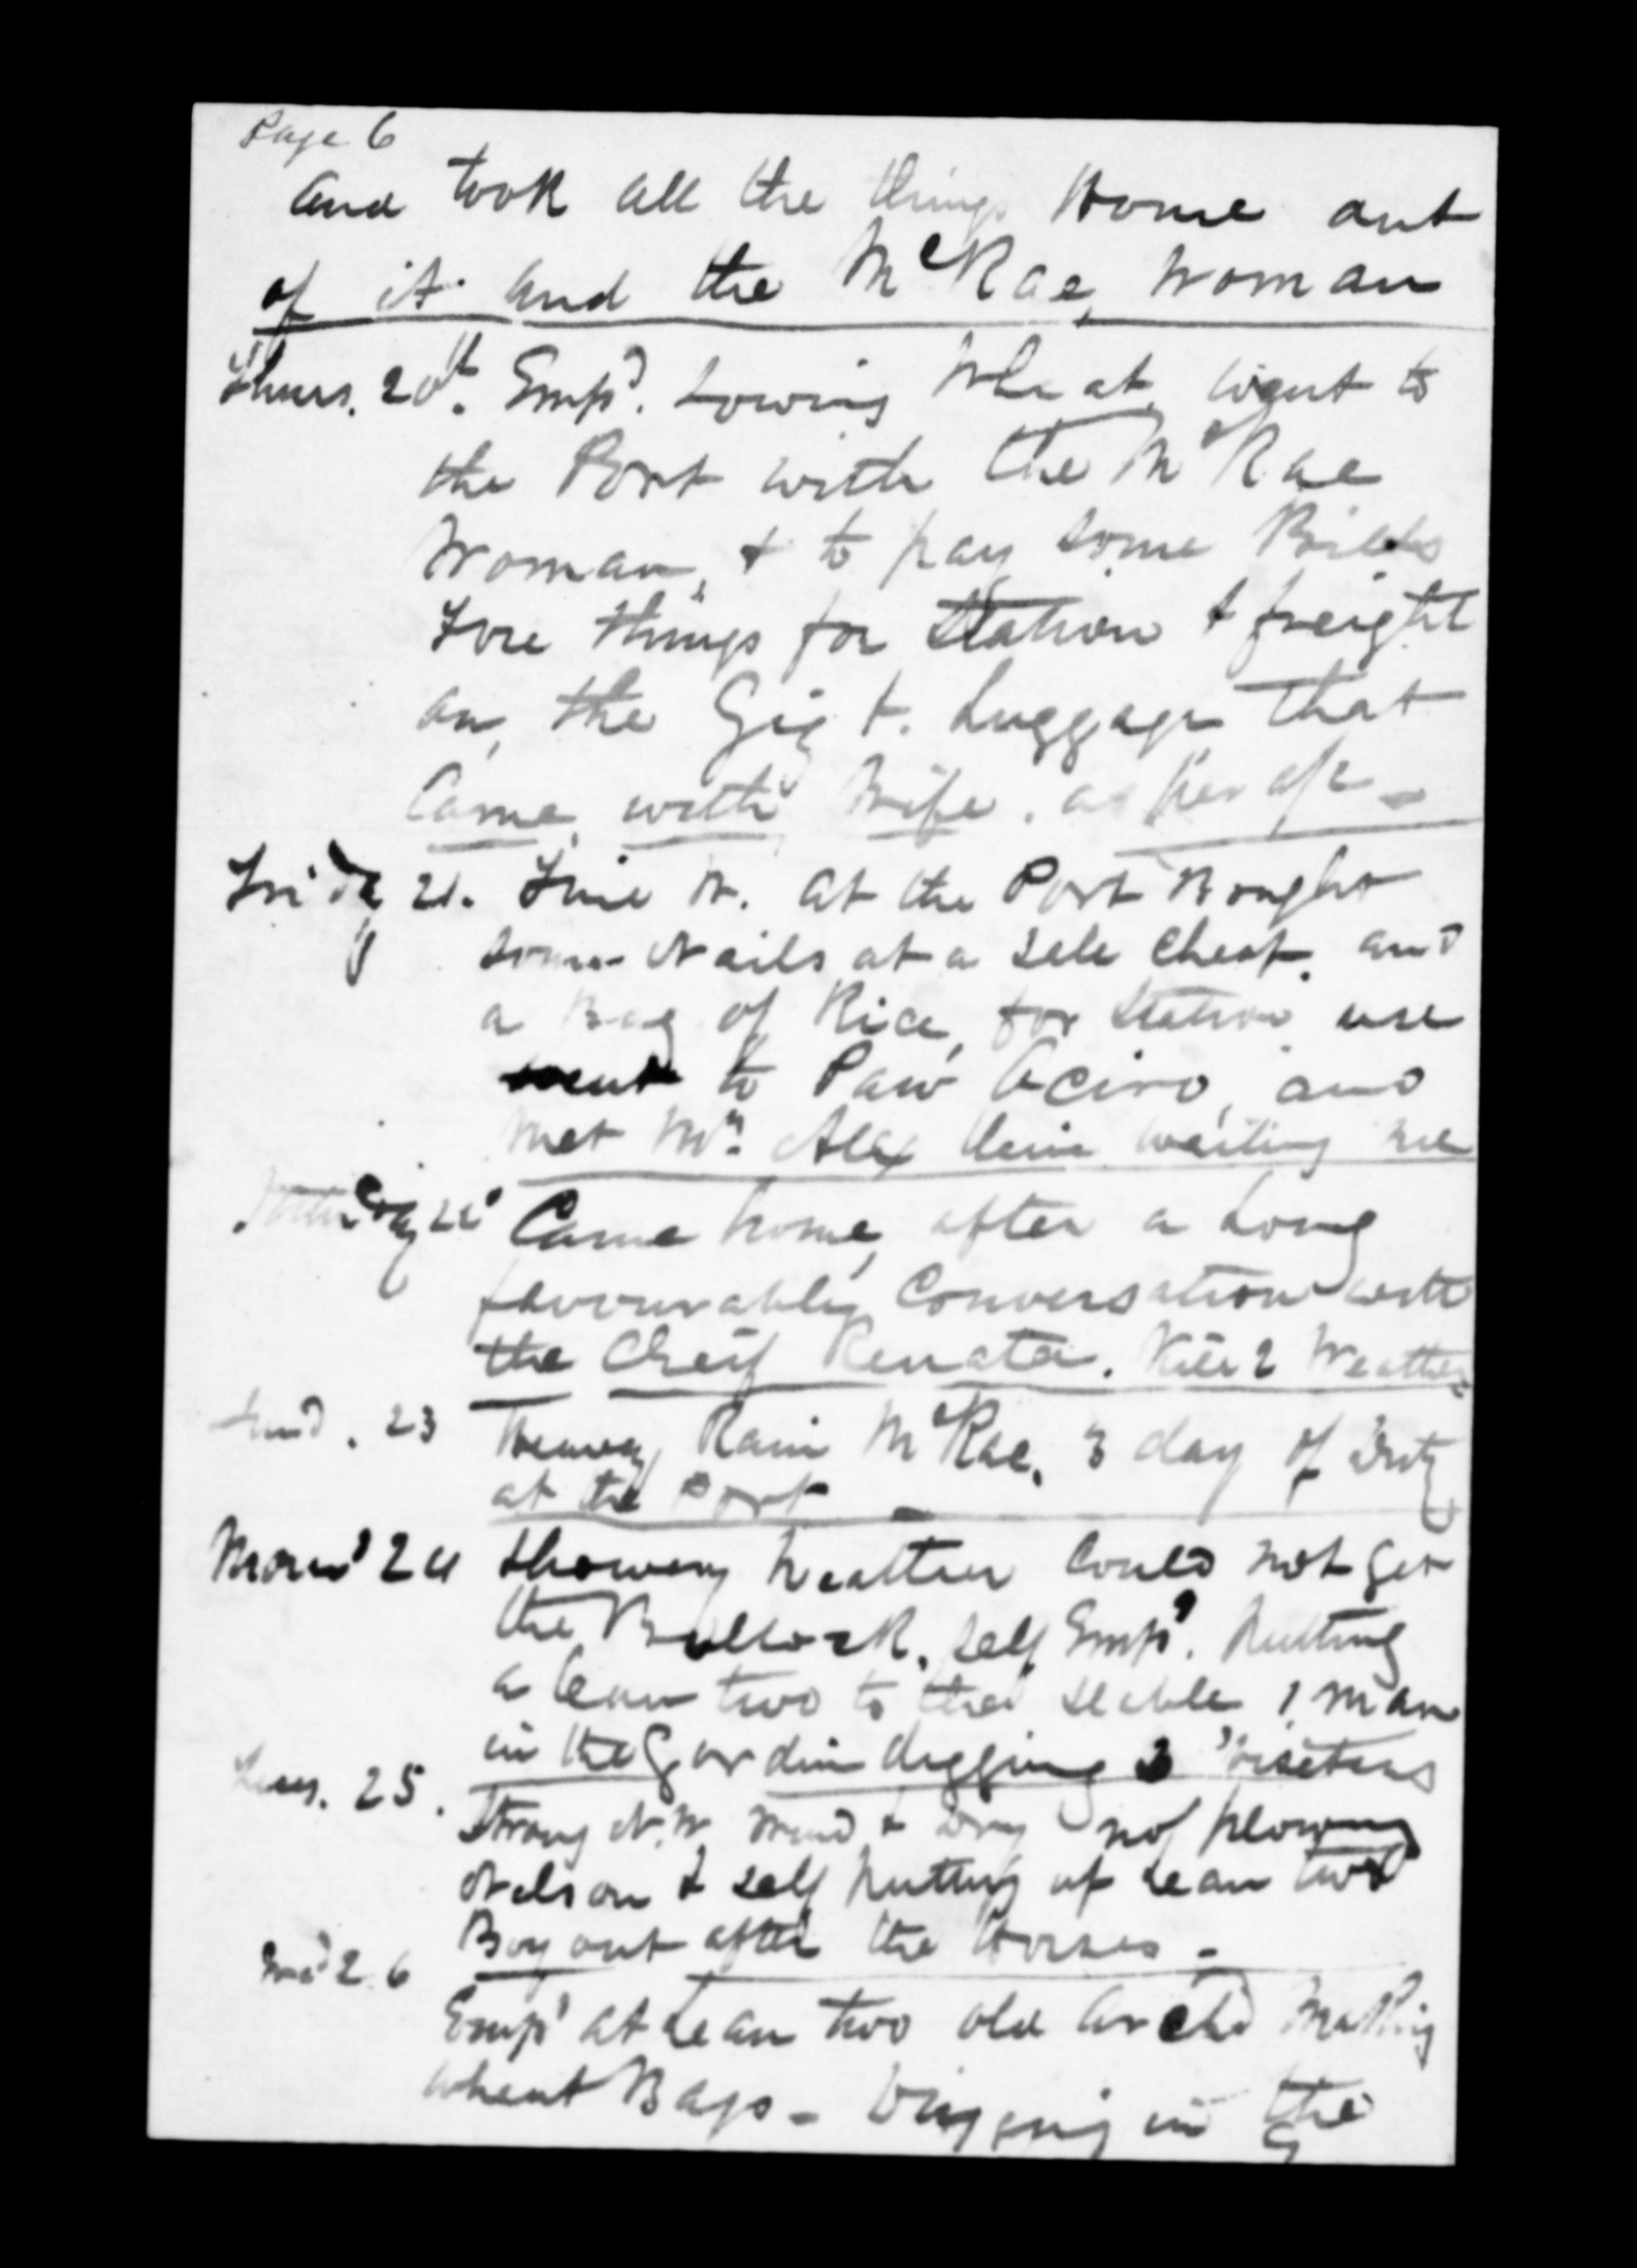 Page 6
and took all the things Home out
of it. and the McRae, Woman
Thurs. 20th. Empd. Sowing Wheat, went to
the Port with the McRae
Woman, & to pay some Bills
for things for Station & freight
on, the Gig &. Luggage that
Came, with Wife. as per a/c
Friday 21. Fine W. at the Port Bought
some Nails at a Sele Cheap. and
a Bag of Rice, for Station use
went to Paw and
met Mr. Alex waiting me
22d Came home, after a Long
favourably Conversation with
the Cheif Renata. 2 Weather
Sund. 23 Heavy Rain McRae. 3 day of Duty
at the Port
Mond 24 Showery Weather Could not get
the Bullock. self Empd. putting
a lean two to the Stable 1 man
in the Gardin digging 3 Viseters
Tues. 25. Strong N.W. Wind & Dry no plowing
Nelson & self putting up Lean two
Boy out after the Horses.
Wed 26 Empd at Lean two old Archd Making
wheat Bags - Digging in the
G